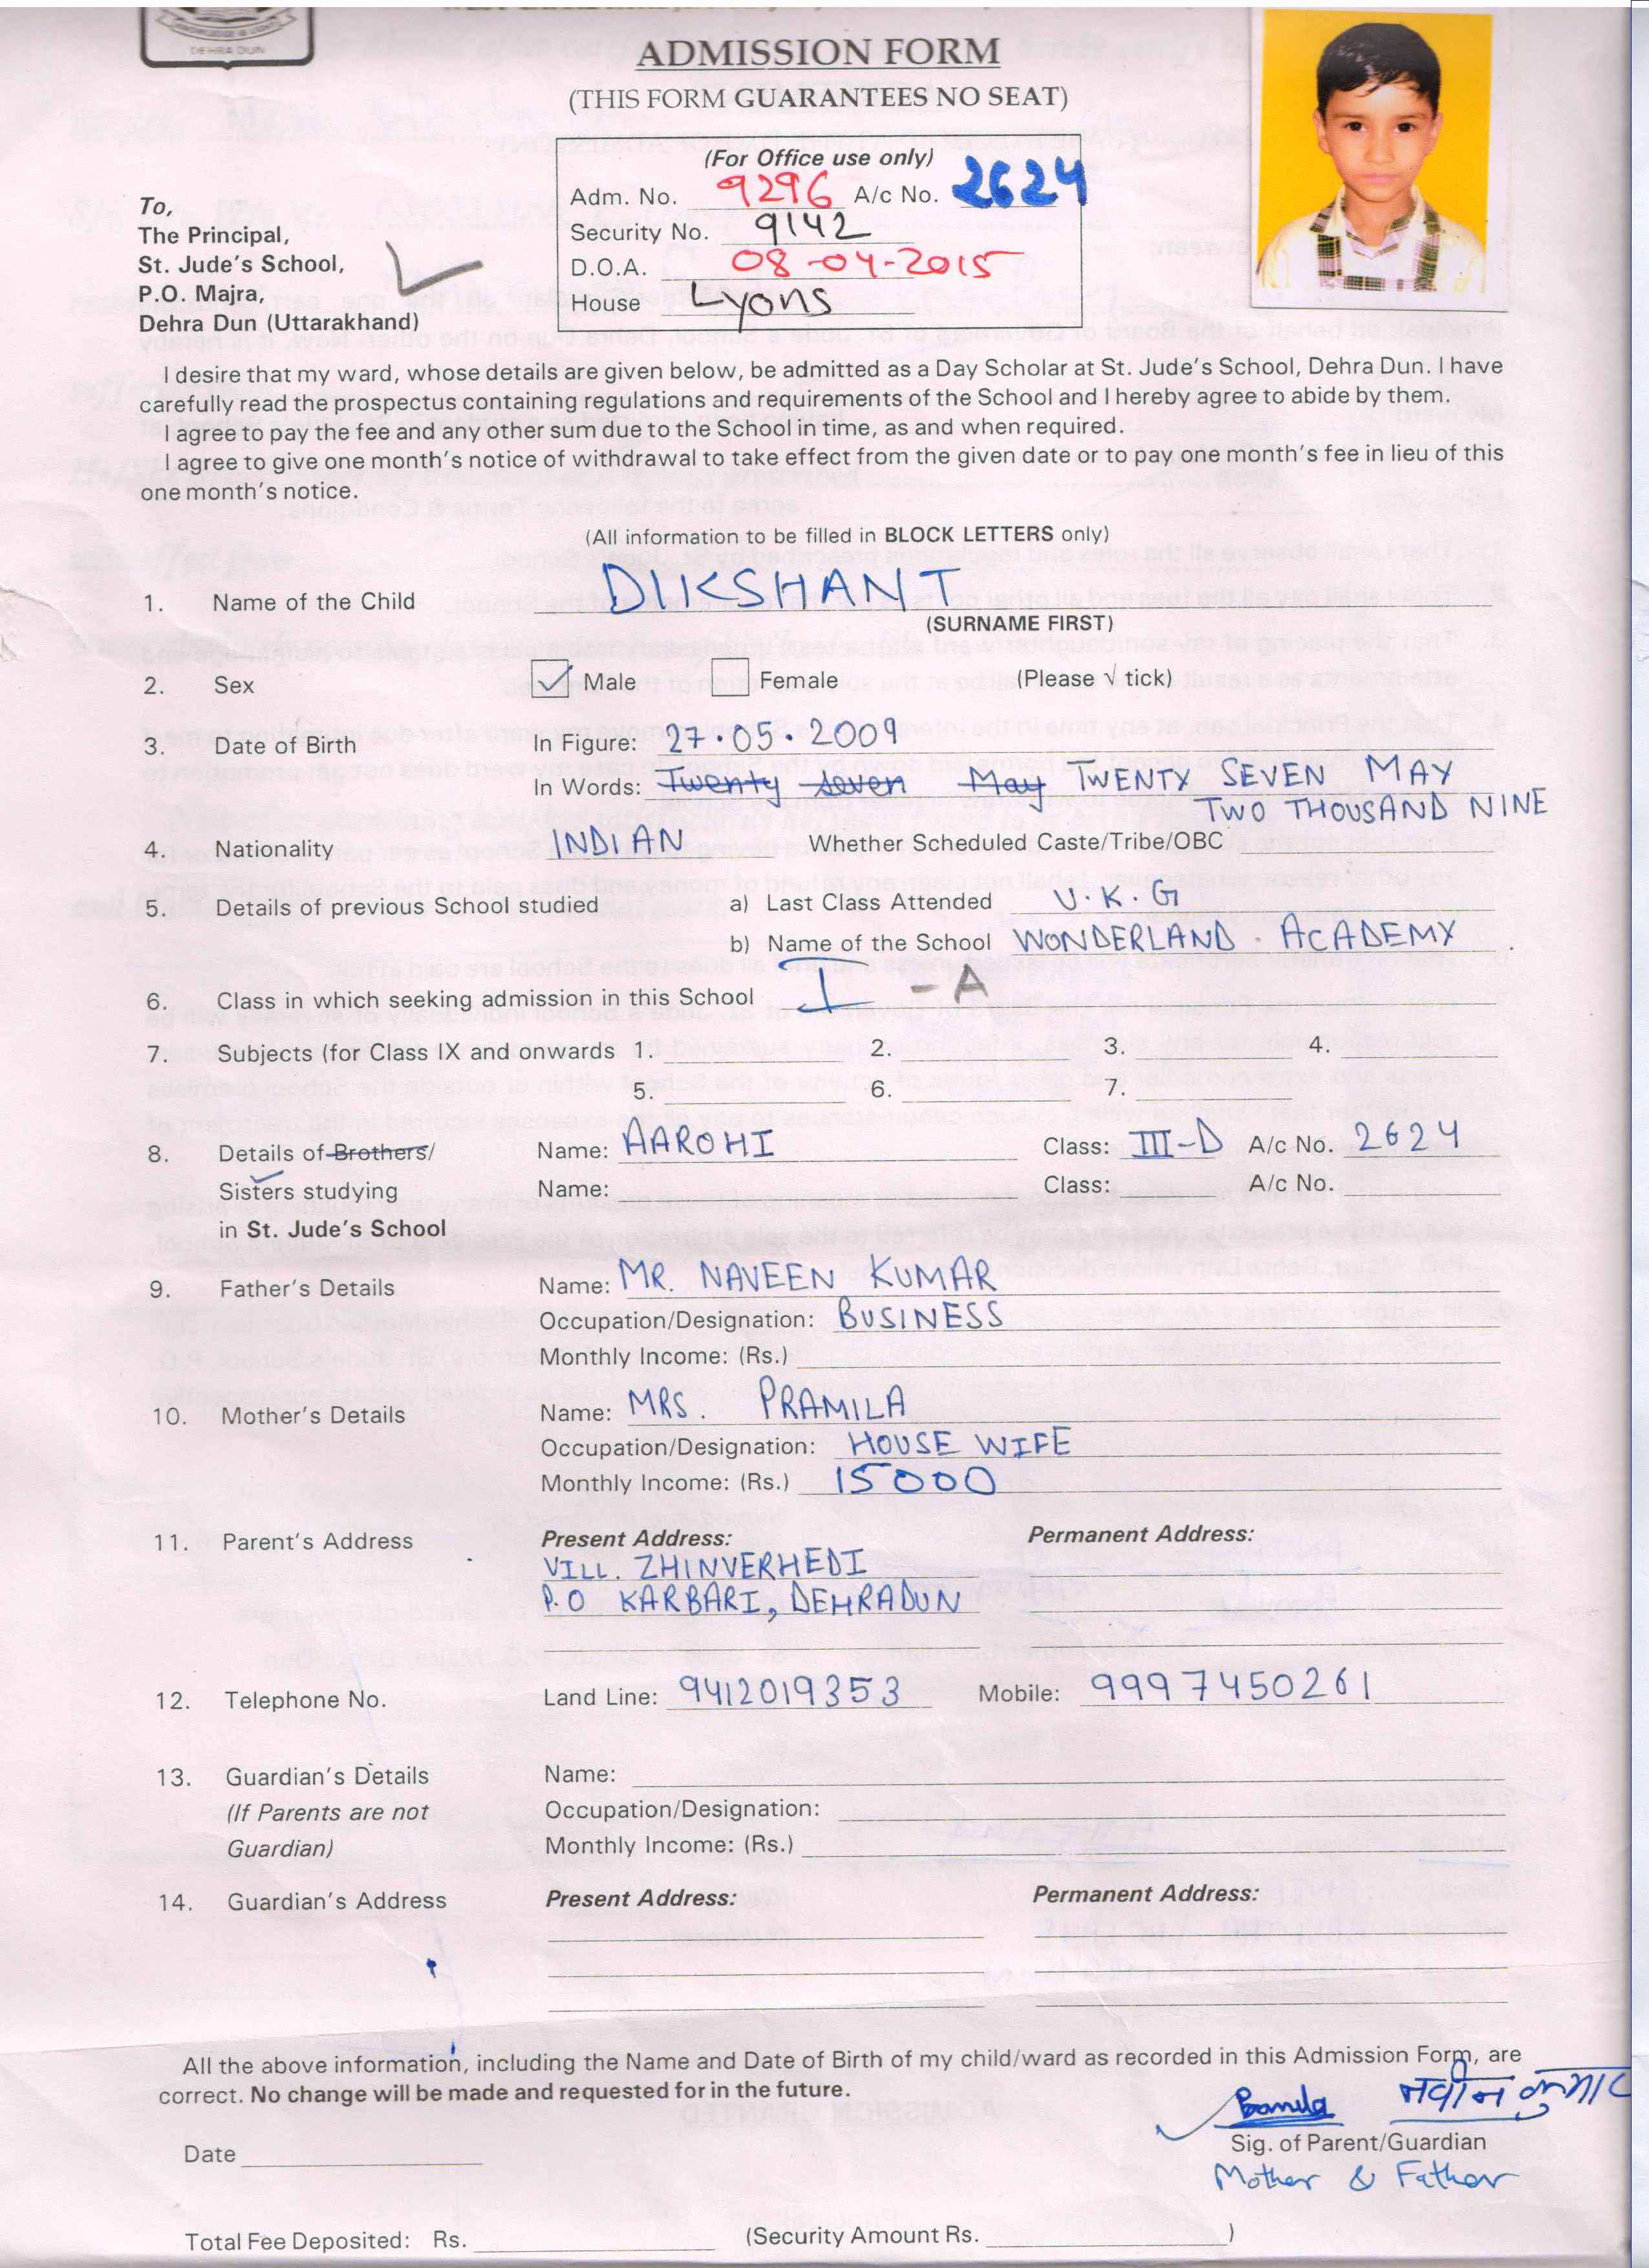 DEHRA DUN
ADMISSION FORM
(THIS FORM GUARANTEES NO SEAT)
(For Office use only)
Adm. No. 9296 A/c No. 2624
Security No. 9142
D.O.A. 08-04-2015
House Lyons
To,
The Principal,
St. Jude's School,
P.O. Majra,
Dehra Dun (Uttarakhand)
I desire that my ward, whose details are given below, be admitted as a Day Scholar at St. Jude's School, Dehra Dun. I have
carefully read the prospectus containing regulations and requirements of the School and I hereby agree to abide by them.
I agree to pay the fee and any other sum due to the School in time, as and when required.
I agree to give one month's notice of withdrawal to take effect from the given date or to pay one month's fee in lieu of this
one month's notice.
(All information to be filled in BLOCK LETTERS only)
1. Name of the Child DIKSHANT
(SURNAME FIRST)
2. Sex ✓ Male Female (Please √ tick)
3. Date of Birth In Figure: 27.05.2009
In Words: Twenty seven May TWENTY SEVEN MAY
TWO THOUSAND NINE
4. Nationality INDIAN Whether Scheduled Caste/Tribe/OBC
5. Details of previous School studied a) Last Class Attended U.K.G
b) Name of the School WONDERLAND. ACADEMY.
6. Class in which seeking admission in this School I - A
7. Subjects (for Class IX and onwards 1. 2. 3. 4.
5. 6. 7.
8. Details of Brothers/ Name: AAROHI Class: III-D A/c No. 2624
Sisters studying Name: Class: A/c No.
in St. Jude's School
9. Father's Details Name: MR. NAVEEN KUMAR
Occupation/Designation: BUSINESS
Monthly Income: (Rs.)
10. Mother's Details Name: MRS. PRAMILA
Occupation/Designation: HOUSE WIFE
Monthly Income: (Rs.) 15000
11. Parent's Address Present Address: Permanent Address:
VILL. ZHINVERHEDI
P.O KARBARI, DEHRADUN
12. Telephone No. Land Line: 9412019353 Mobile: 9997450261
13. Guardian's Details Name:
(If Parents are not Occupation/Designation:
Guardian) Monthly Income: (Rs.)
14. Guardian's Address Present Address: Permanent Address:
All the above information, including the Name and Date of Birth of my child/ward as recorded in this Admission Form, are
correct. No change will be made and requested for in the future.
नवीन कुमार
Sig. of Parent/Guardian
Date
Mother & Father
Total Fee Deposited: Rs. (Security Amount Rs. )